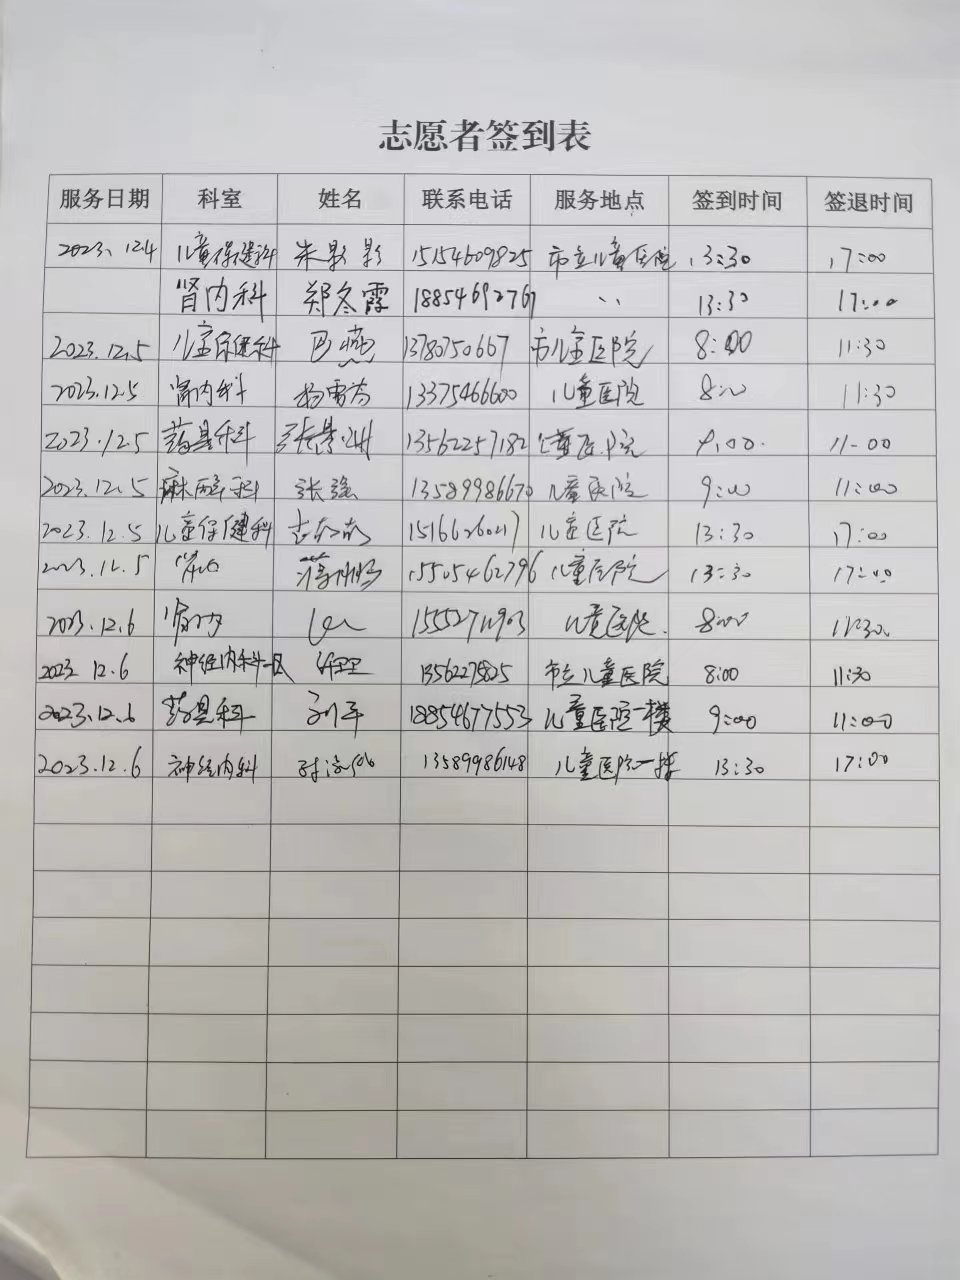 志愿者签到表
服务日期 科室 姓名 联系电话 服务地点 签到时间 签退时间
2023.12.4 儿童保健科 朱影影 15154609825 市立儿童医院 13:30 17:00
肾内科 郑冬霞 18854692767 、、 13:30 17:00
2023.12.5 儿童保健科 巴燕 13780750667 市儿童医院 8:00 11:30
2023.12.5 肾内科 13375466600 儿童医院 8:00 11:30
2023.12.5 药具科 13562257182 儿童医院 9:00. 11-00
2023.12.5 麻醉科 张强 13589986670 儿童医院 9:00 11:00
2023.12.5 儿童保健科 儿童医院 13:30 17:00
2023.12.5 肾内 15505462796 儿童医院 13:30 17:00
2023.12.6 肾内 儿童医院. 8:00 11:30
2023.12.6 神经内科一区 13562275825 市立儿童医院 8:00 11:30
2023.12.6 药具科 刘平 18854677553 儿童医院一楼 9:00 11:00
2023.12.6 神经内科 13589986148 儿童医院一楼 13:30 17:00